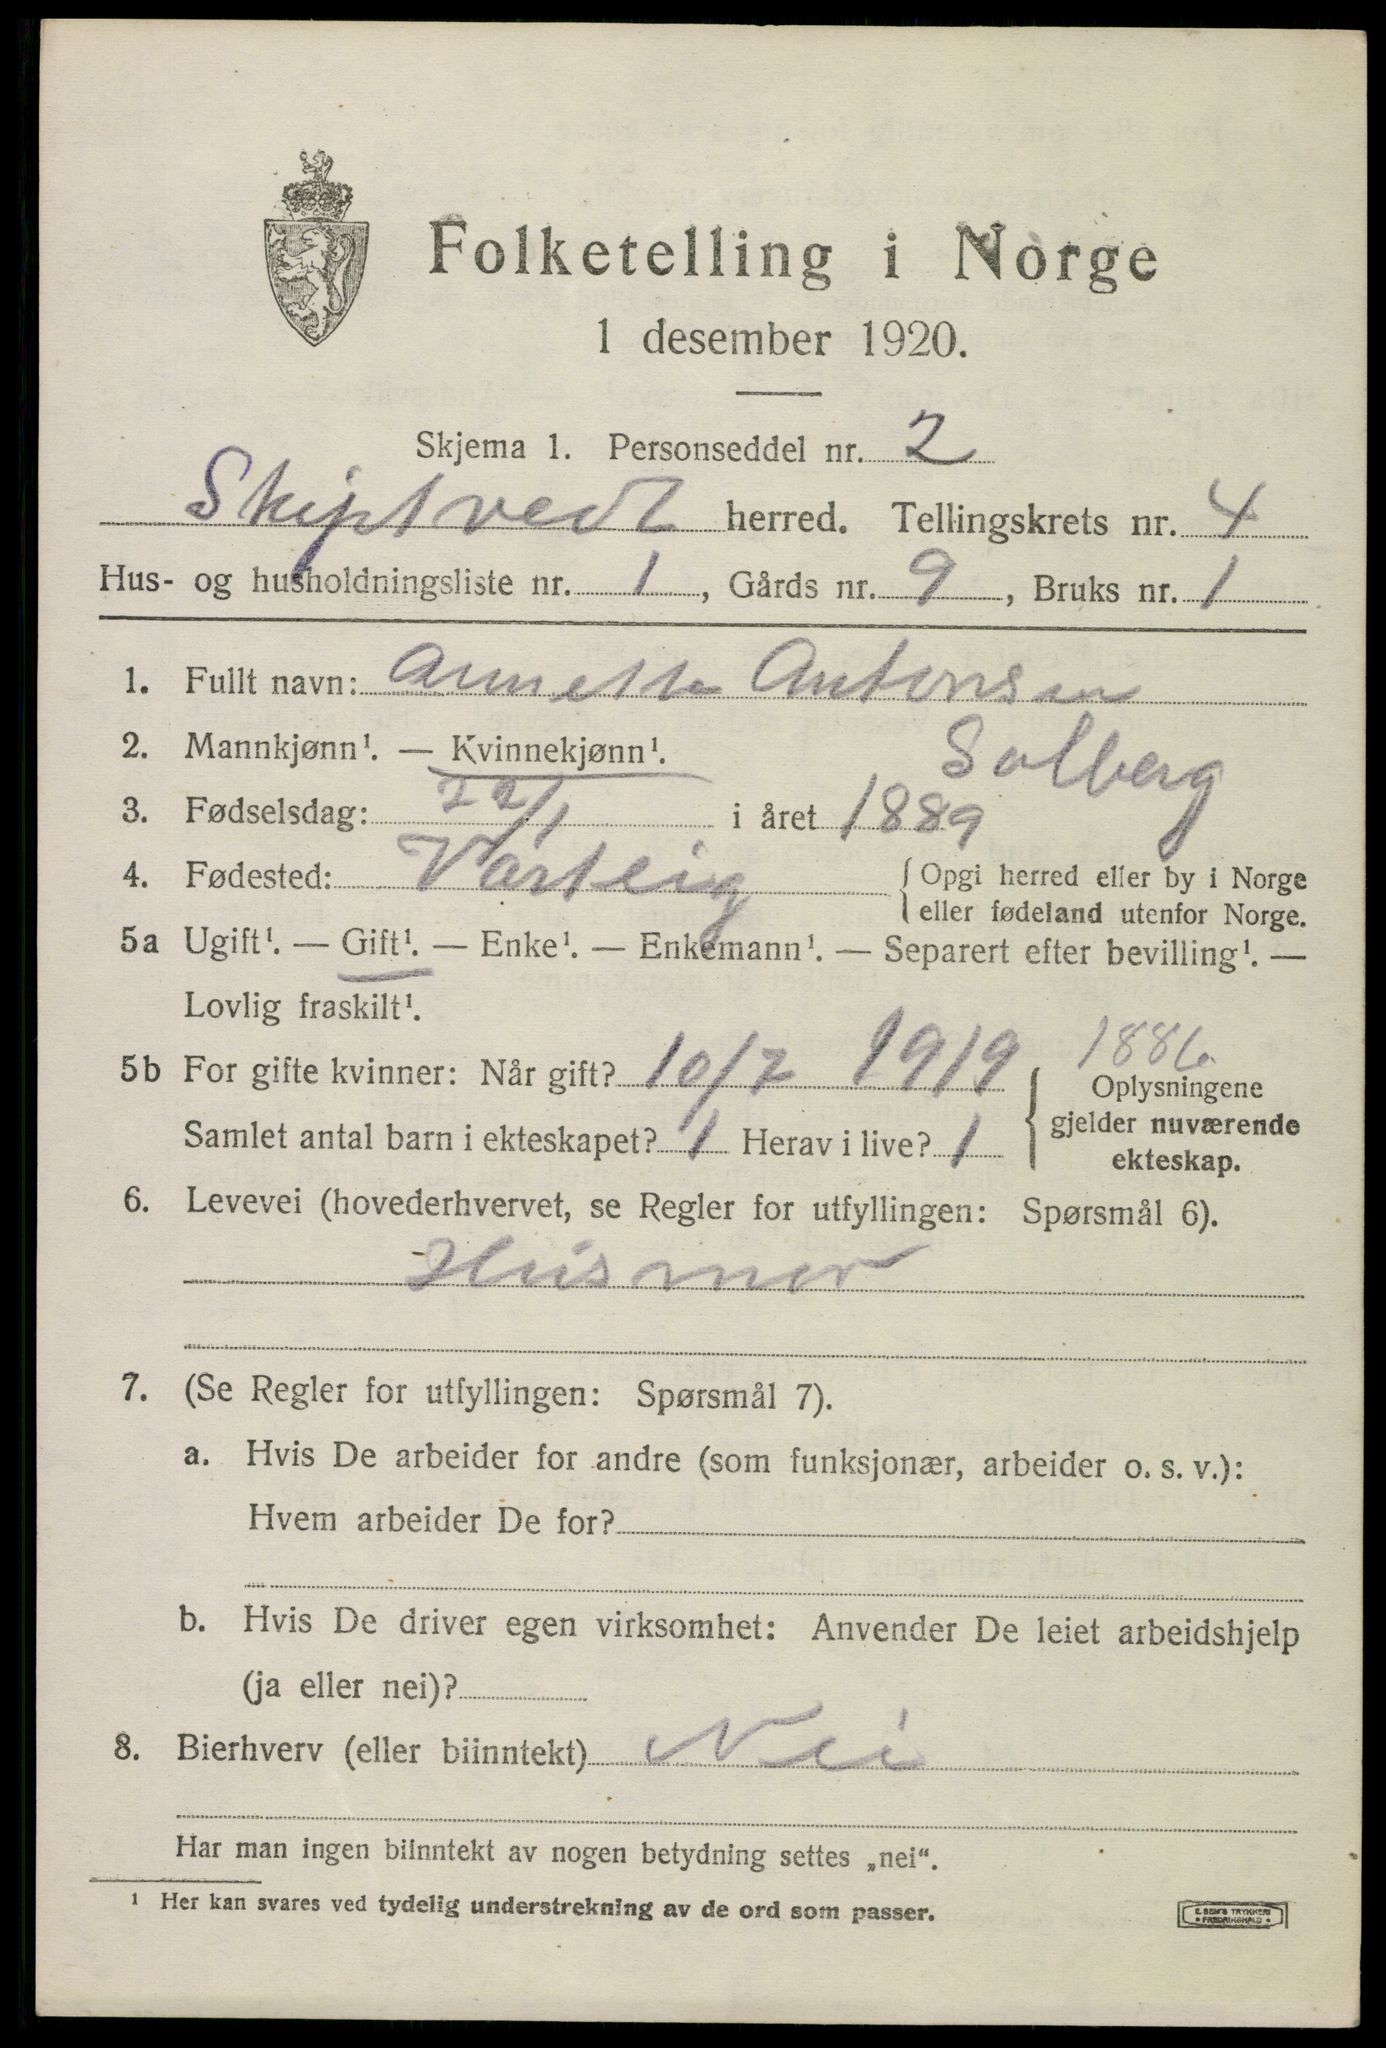 Folketelling i Norge
1 desember 1920.
Skjema 1. Personseddel nr. 2
Skiptvedt herred. Tellingskrets nr. 4
Hus- og husholdningsliste nr. 1, Gårds nr. 9, Bruks nr. 1
1. Fullt navn: Annette Antonsen
Solberg
2. Mannkjønn¹. — Kvinnekjønn¹.
3. Fødselsdag: 22/1 i året 1889
4. Fødested: Varteig { Opgi herred eller by i Norge
eller fødeland utenfor Norge.
5a Ugift¹. — Gift¹. — Enke¹. — Enkemann¹. — Separert efter bevilling¹. —
Lovlig fraskilt¹.
1886
5b For gifte kvinner: Når gift? 10/7 1919 { Oplysningene
gjelder nuværende
ekteskap.
Samlet antal barn i ekteskapet? 1 Herav i live? 1
6. Levevei (hovederhvervet, se Regler for utfyllingen: Spørsmål 6).
Husmor
7. (Se Regler for utfyllingen: Spørsmål 7).
a. Hvis De arbeider for andre (som funksjonær, arbeider o. s. v.):
Hvem arbeider De for?
b. Hvis De driver egen virksomhet: Anvender De leiet arbeidshjelp
(ja eller nei)?
8. Bierhverv (eller biinntekt) Nei
Har man ingen biinntekt av nogen betydning settes „nei“.
¹ Her kan svares ved tydelig understrekning av de ord som passer.
E. SEM'S TRYKKERI
FREDRIKSHALD